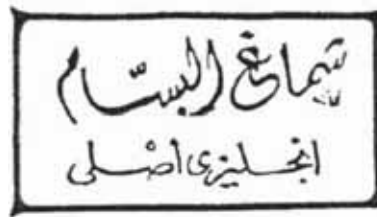 شماغ البسّام
انجليزى اصلى